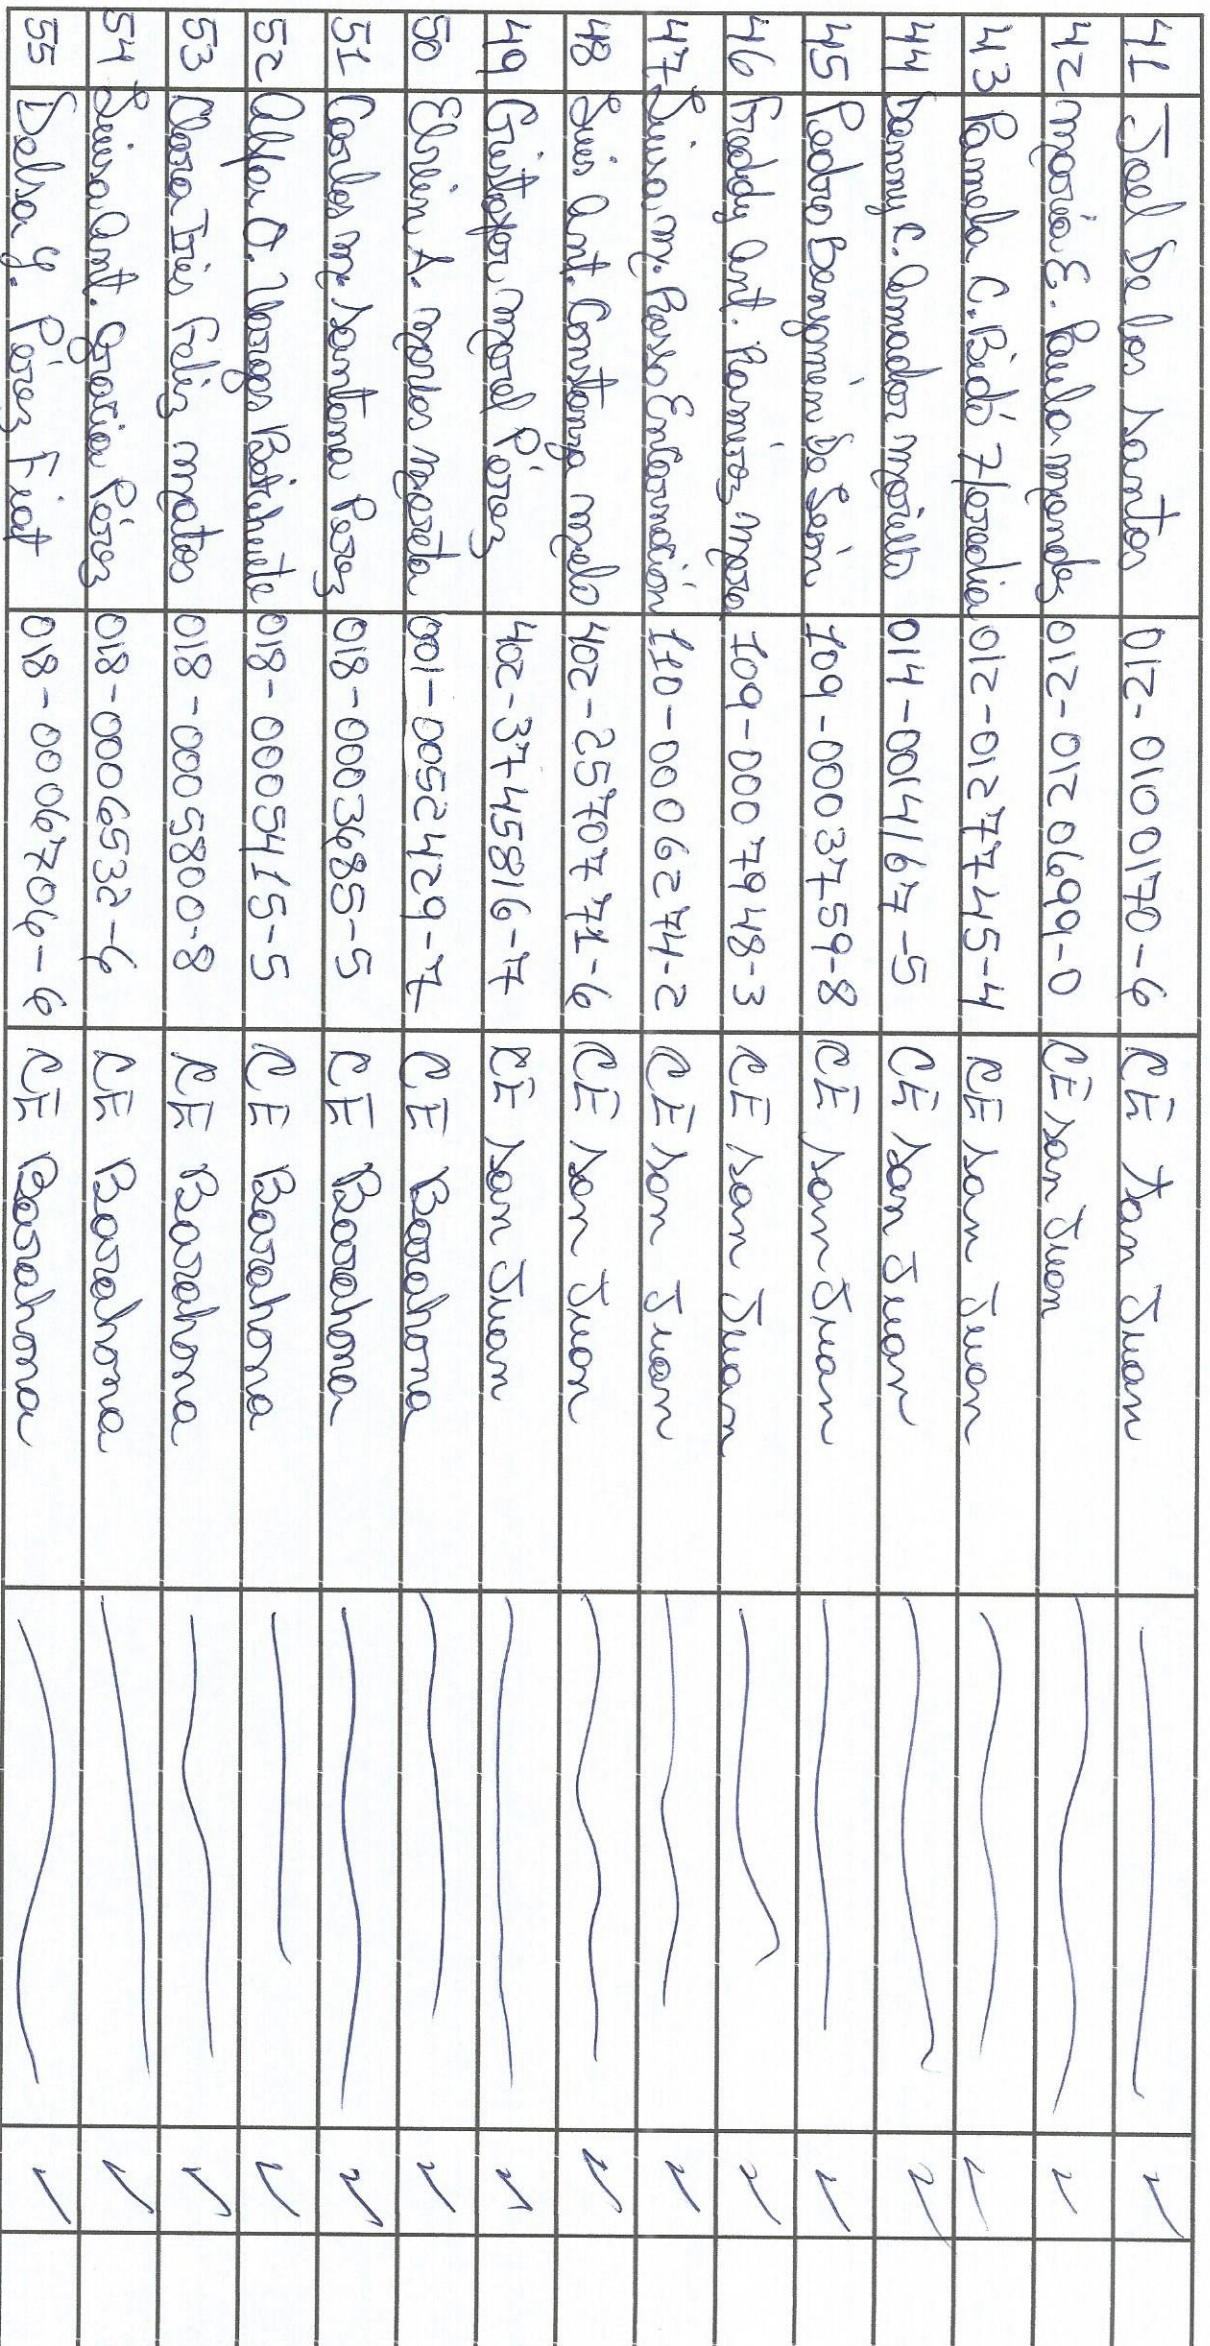 41 Joel De los Santos 012-0100170-6 CE San Juan
42 María E. Paula Mendez 012-0120699-0 CE San Juan
43 Pamela C. Bidó Heredia 012-0127745-4 CE San Juan
44 Danny C. Amador Morillo 014-0014167-5 CE San Juan
45 Pedro Benjamín De León 109-0003759-8 CE San Juan
46 Freddy Ant. Ramírez Mora 109-0007948-3 CE San Juan
47 Luisa M. Rosso Encarnación 110-0006274-2 CE San Juan
48 Luis Ant. Constanza Melo 402-2570771-6 CE San Juan
49 Cristofer Morel Pérez 402-3745816-7 CE San Juan
50 A. 001-0052429-7 CE Barahona
51 Carlos M. Santana Perez 018-0003685-5 CE Barahona
52 O. Vargas 018-0005415-5 CE Barahona
53 Clara Iris Feliz Matos 018-0005800-8 CE Barahona
54 Luisa Ant. Gracia Pérez 018-0006532-6 CE Barahona
55 Delsa Y. Pérez 018-0006706-6 CE Barahona